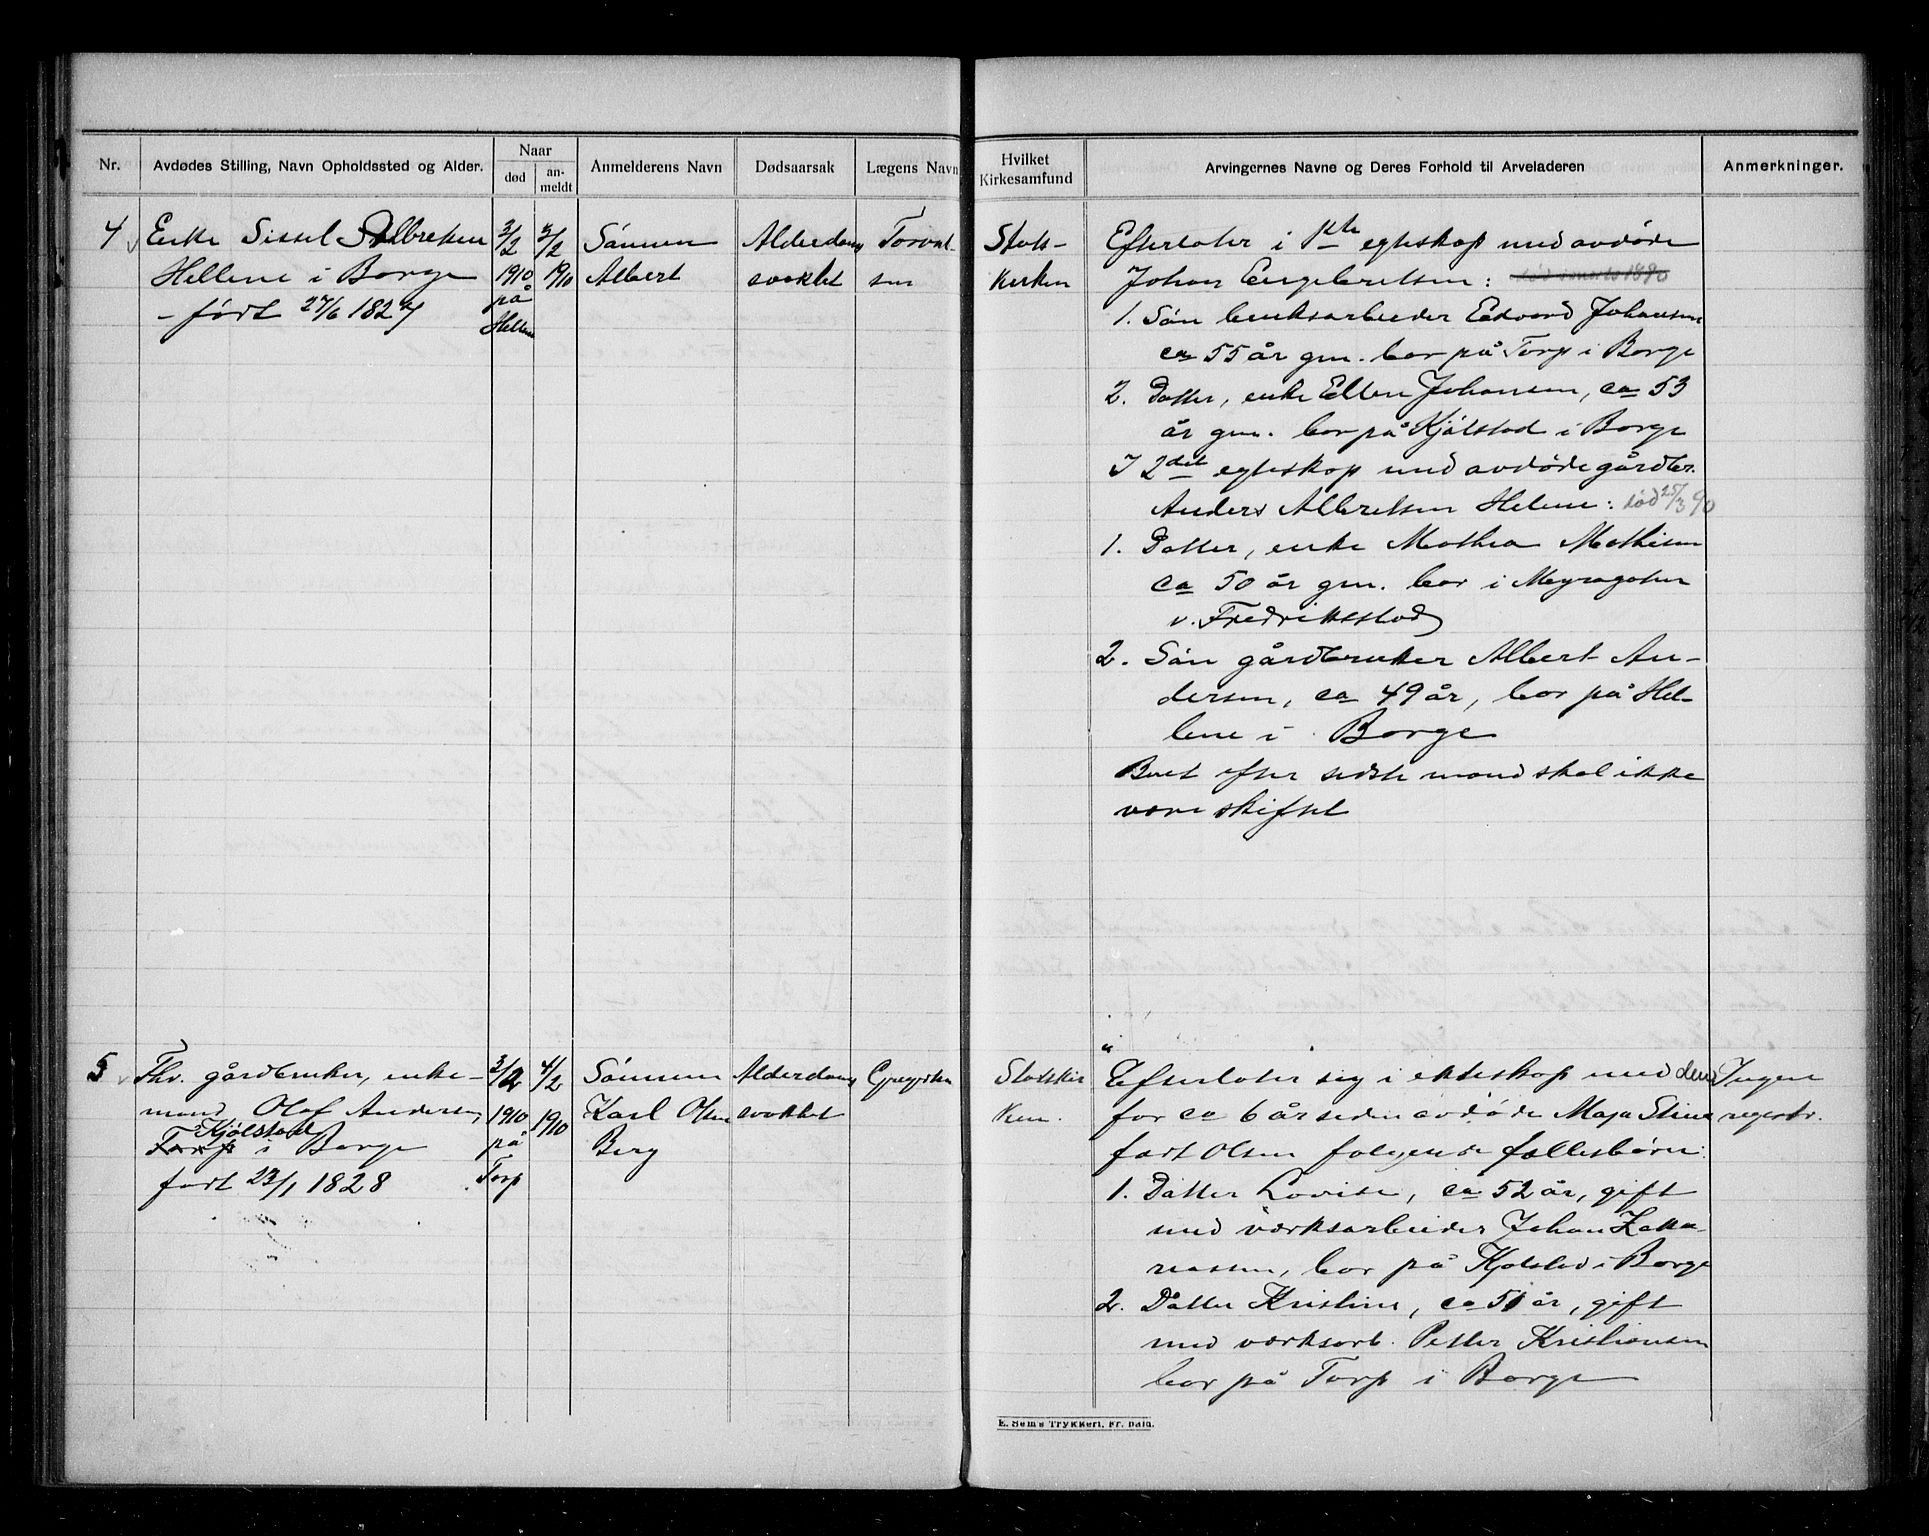 Nr.
Avdødes Stilling, Navn Opholdssted og Alder.
Naar
død
an-
meldt
Anmelderens Navn
Dødsaarsak
Lægens Navn
Hvilket
Kirkesamfund
Arvingernes Navne og Deres Forhold til Arveladeren
Anmerkninger.
4
Enke Sissel Albretsen
Hellene i Borge
- født 27/6 1827
3/2
1910
på
Hellene
5/2
1910
Sønnen
Albert
Alderdoms
svakhet
Torval-
sen
Stats-
kirken
Efterlater i 1ste egteskap med avdøde
Johan Engebretsen: død i marts 1890
1. Søn bruksarbeider Edvard Johansen
ca 55 år gm. bor på Torp i Borge
2. Datter, enke Ellen Johansen, ca 53
år gm. bor på Kjølstad i Borge
I 2det egteskap med avdøde gårdbr.
Anders Albretsen Helene: død 25/3 90
1. Datter, enke Mathea Mathisen
ca 50 år gm. bor i Møyragaten
v. Fredriksstad
2. Søn gårdbruker Albert An-
dersen, ca 49 år, bor på Hel-
lene i Borge
Boet efter sidste mand skal ikke
være skiftet
5
Fhv. gårdbruker, enke-
mand Olaf Andersen,
Kjølstad
Torp i Borge
født 23/1 1828
3/2
1910
på
Torp
4/2
1910
Sønnen
Karl Olsen
Berg
Alderdoms
svakhet
Gregersen
Statskir
ken.
Efterlater sig i ekteskap med den
for ca 6 år siden avdøde Maja Stine
født Olsen følgende fællesbørn:
1. Datter Lovise, ca 52 år, gift
med værksarbeider Johan Zaka-
riassen, bor på Kjølstad i Borge
2. Datter Kristine, ca 51 år, gift
med værksarb. Petter Kristiansen
bor på Torp i Borge
Ingen
registr.
E. Sems Trykkeri, Fr. hald.